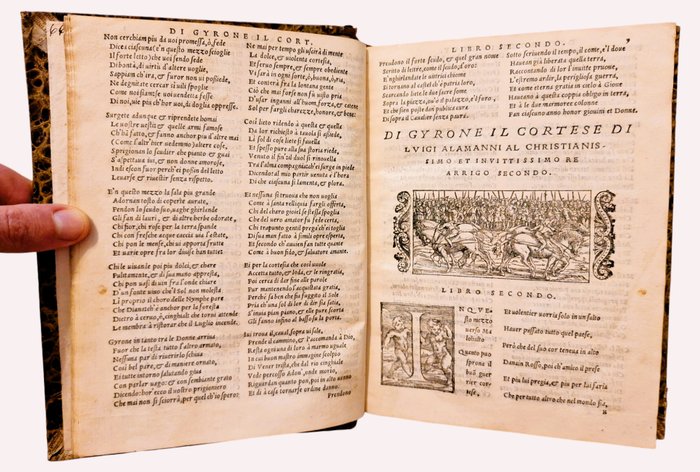 DI GYRONE IL CORT.
Non cerchiam piu da voi promessa, ò fede
Dicea ciascuna (e'n questo mezzo scioglie
Il forte letto) che voi sendo
Di bontà, di virtù d'altere voglie,
Sappiam ch'ira, & furor non vi possiede,
Ne degnate cercar sì vili spoglie
Come noi siam
Di noi, vie più ch'hor voi, di doglia oppresse.
Surgete adunque & riprendete homai
Le vostre vesti & quelle armi famose
Ch'hà fatto, & fanno anchor piu d'altre mai
(Come dall'hier vedemmo) altere cose,
Spregionan lo scudier che pianto & guai
S'aspettava ivi, & non donne amorose,
Indi escon fuor perch'ei posin del letto
Levarse & rivestir senza rispetto.
E'n questo mezzo la sala piu grande
Adornan tosto di coperte aurate,
Pendon lo scudo suo, vaghe ghirlande
Gli fan di lauri, & di altre herbe odorate,
Chi fior, chi rose per la terra spande
Chi con fresche acque caccia via l'estate,
Chi pon le mense, chi vi apporta frutte
Et varie opre fra lor divise han tutte.
Chi le vivande poi piu dolci, &
Pulitamente, & di sua mano appresta,
Chi pon vasi di vin fra l'onde chiare
D'un fonte vivo che'l Sol non molesta
Lì proprio il choro delle Nymphe pare
Che Diana anchor per la foresta
Dietro à cervo, ò cinghiale che torni intende
Le membra à ristorar che il Luglio incende.
Gyrone in tanto tra le Donne arriva
Fuor che la testa tutto l'altro armato,
Nessuna par di riverirlo schiva
Così bel pare, & di maniere ornato,
Ei tutte intorno salutando giva
Con parlar vago: & con sembiante grato
Dicendo: hor ecco il vostro prigioniero
Che mai non si sciorrà, per quel ch'io spero:
Ne mai per tempo gli uscirà di mente
La dolce, & vostra cortesia,
Et vi sarà sempre, & sempre obediente
In ogni forte, ò buona, ò ria,
Et conterà fra la lontana gente
Ciò che mai forse non si crederia
D'haver inganni all'huom, forza, & catene
Sol per fargli d'honore, honore, & bene.
Così lieto ridendo à queste & quelle
Da lor richiesto à tavola si asside,
Là sol di cose liete si favella
Et spesso pure alla sua storia ride,
Venuto il fin'al duol si rinovella
Tra l'alma compagnia ch'ei surge in piede
Dicendo: al mio partir venuta è l'hora,
Di che ciascuna si lamenta, & plora.
Et nessuna si truova che non voglia
Come à santa reliquia fargli offerta,
Chi del chiaro gioiel se stessa spoglia
Che del vero amator fu fede certa,
Chi trapunto gentil prega ch'ei toglia
Di sua man fatto à simili opre esperta,
Et secondo chi avuien fan tutte quante
Come à buon fido, & salutare amante.
Et per la cortesia che così vuole
Accetta tutto, & loda, & le ringratia,
Poi cerca di dar fine alle parole
Pur mantenendo l'acquistata gratia,
Perche sa ben che sia fuggito il Sole
Pria ch'una sol di lor di dir sia satia,
S'invia pian pian, & le sue pure scorte
Gli fanno insino al basso su la porta.
Sui truova il caval, sopra vi sale,
Prende il cammino, & l'accomanda à Dio,
Resta ognuna di loro à marmo uguale
In cui buon mastro immagine scolpio
Di Vener trista, che dal rio cinghiale
Vede percosso Adon', onde morio,
Riguardan quanto pon, poi in alto vanno
Ciascun in loro ordine stanno.
Prendono
LIBRO SECONDO.
9
Prendono il forte scudo, & quel gran nome
Scritto di lettre, come il scudo, d'oro:
E'nghirlandate le vittrici chiome
Ritornano al castel do v'patria loro,
Scarcando liete le due some
Sopra la piazza, ov'il palazzo, è'l foro,
Et che fosse poste dan publica cura
Di sopra il Cavalier senza paura.
Sotto scrivendo il tempo, il come, e'l dove
Havean già liberata quella terra,
Raccontando di lor l'invitte prove,
L'estremo ardir, la perigliosa guerra,
Et come eterna gratia in cielo à Giove
Havranno à quella coppia obligo in terra,
Et à le due marmoree colonne
Fan ciascun anno honor giovini et Donne.
DI GYRONE IL CORTESE DI
LVIGI ALAMANNI AL CHRISTIANIS-
SIMO ET INVITTISSIMO RE
ARRIGO SECONDO.
LIBRO SECONDO.
I
N QVE
sto mezzo
verso Ma
lohalto
Quanto può
sprona il
buō guer
rier cor
tese,
Et volentier vorria solo in un salto
Haver passato tutto quel paese,
Però che del suo cor teneva in alto
Danain Rosso, poi ch'amico il prese
Et piu lui pregia, & piu per lui faria
Che per tutto altro che nel mondo sia,
B